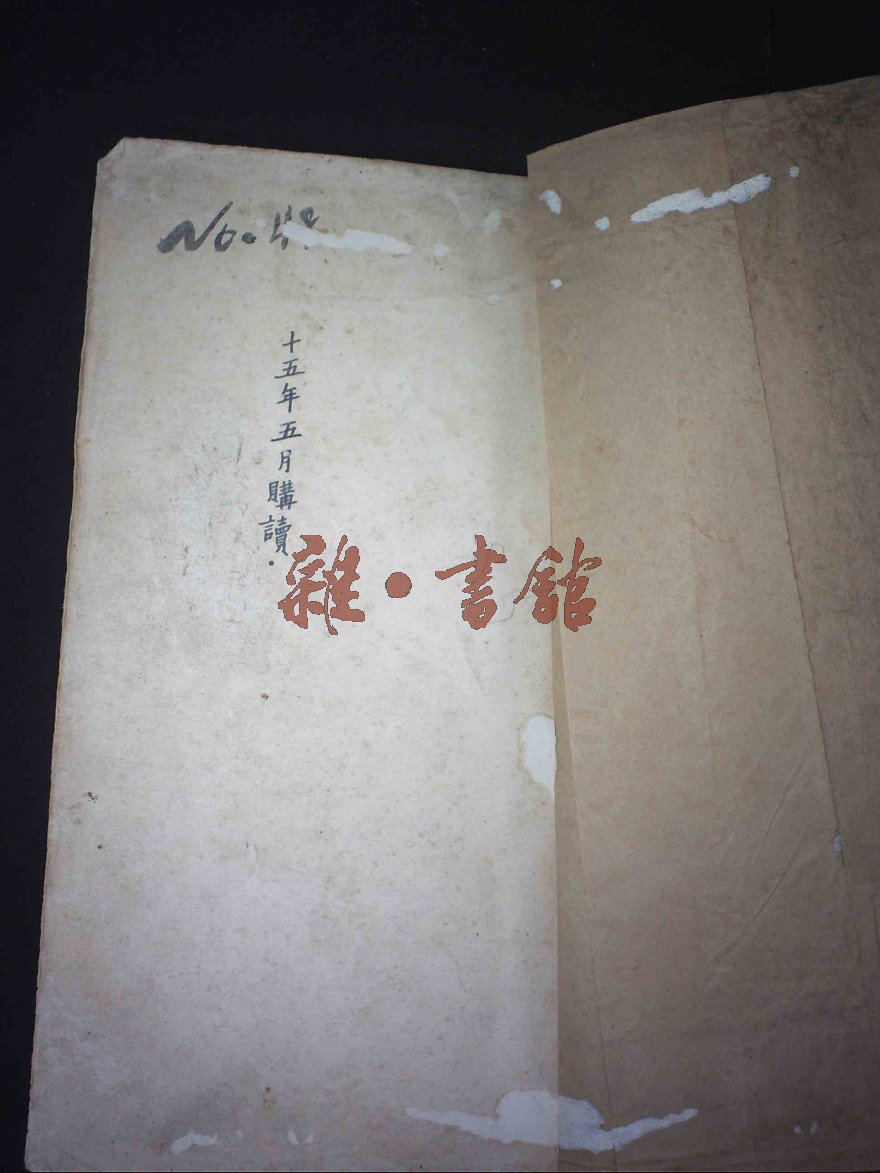 No.
十五年五月購讀.
雜·書館